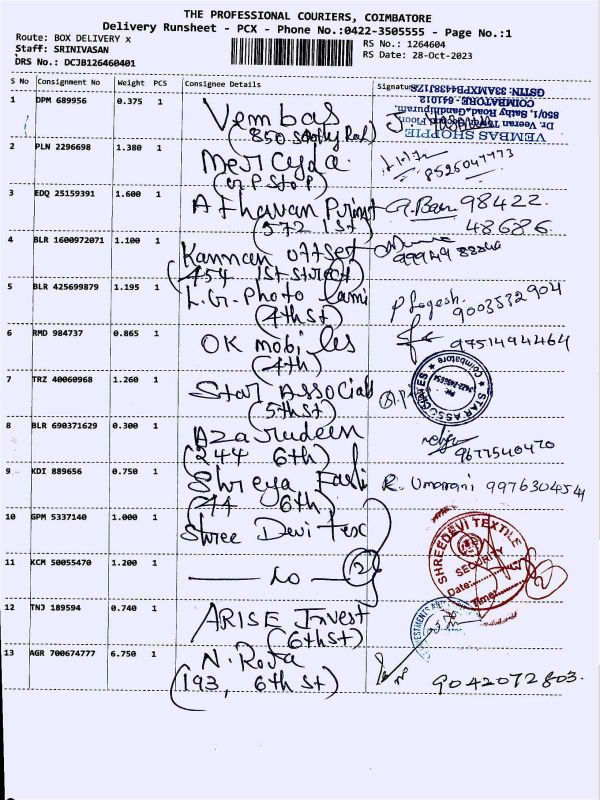 THE PROFESSIONAL COURIERS, COIMBATORE
Delivery Runsheet - PCX - Phone No.:0422-3505555 - Page No.:1
Route: BOX DELIVERY x
RS No.: 1264604
Staff: SRINIVASAN
RS Date: 28-Oct-2023
DRS No.: DCJB126460401
S No Consignment No Weight PCS Consignee Details Signature
1 DPM 689956 0.375 1 Vembas
VEMBAS SHOPPIE
Dr. Veeran Towers
850/1, Sathy Road, Gandhipuram,
COIMBATORE - 641012
GSTIN: 33AMXPB4438J1ZS
2 PLN 2296698 1.380 1
8526047773
3 EDQ 25159391 1.600 1 Athavan Print 98422
(572 1st) 48686
4 BLR 1600972071 1.100 1 Kannan offset
(454 1st street)
5 BLR 425699879 1.195 1 L.G. Photo Lami P Logesh. 9003532904
(4th st)
6 RMD 984737 0.865 1 OK mobiles 9751494464
(4th)
7 TRZ 40060968 1.260 1 Star Associats
STAR ASSOCIATES
Coimbatore
(5th st)
8 BLR 690371629 0.300 1 Azarudeen
(244 6th) 9677540470
9 KDI 889656 0.750 1 Shreya Fashi R. Umarani 9976304541
(44 6th)
10 GPM 5337140 1.000 1 Shree Devi Tex
SHREEDEVI TEXTILE
SECURITY
Date:
Time:
11 KCM 50055470 1.200 1 2
12 TNJ 189594 0.740 1 ARISE Invest
(6th st)
13 AGR 700674777 6.750 1 N. Roja
(193, 6th st) 9042072803.